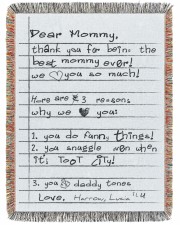 Dear Mommy,
thank you for being the
best mommy ever!
we you so much!
Here are 3 reasons
why we you:
1. you do fanny things!
2. you snaggle when
it's TOOT
3. you daddy tones
Love, Harrow,